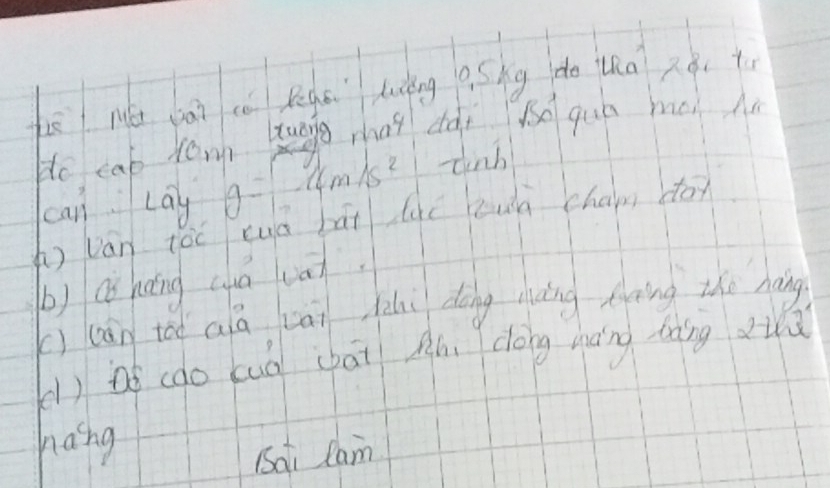 Đề Một vật có khối lượng 0,5kg đc thả rơi từ
độ cao 10m xuống mặt đất Bỏ qua mọi
cản. Lấy g= m/s² tính
a) Vận tốc của vật lúc vừa chạm đất
b) Cơ năng của vật.
c) Vận tốc của vật khi động năng bằng thế năng
d) Độ cao của vật khi động năng bằng 2 thế
năng
Bài làm